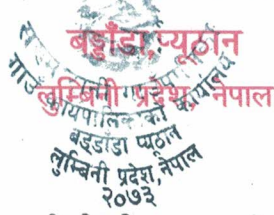 बड्डाँडा, प्यूठान
लुम्बिनी प्रदेश, नेपाल
गाउँ कार्यपालिकाको कार्यालय
बड्डाँडा प्यूठान
लुम्बिनी प्रदेश, नेपाल
२०७३